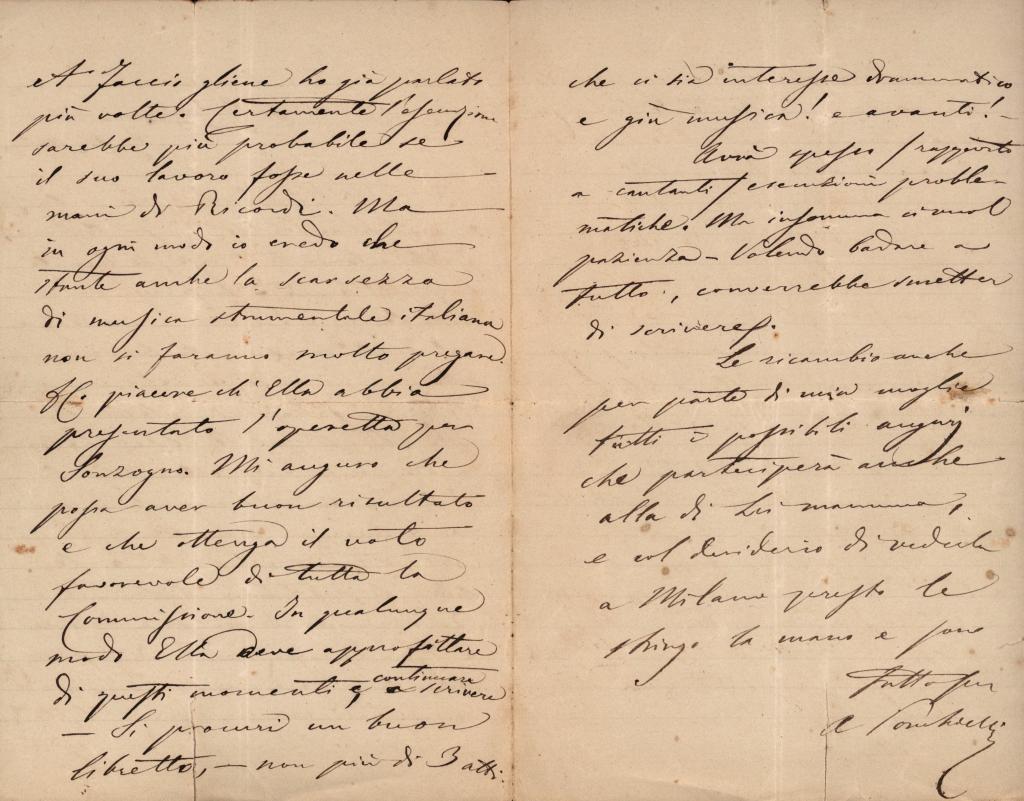 A Faccio gliene ho già parlato
più volte. Certamente l'esecuzione
sarebbe più probabile se
il suo lavoro fosse nelle
mani di Ricordi. Ma
in ogni modo io credo che
stante anche la scarsezza
di musica strumentale italiana
non si faranno molto pregare.
Ho piacere ch'Ella abbia
presentato l'operetta per
Sonzogno. Mi auguro che
possa aver buon risultato
e che ottenga il voto
favorevole di tutta la
Commissione. In qualunque
modo Ella deve approfittare
di questi momenti e continuare
a scrivere
— Si procuri un buon
libretto, — non più di 3 atti.
che ci sia interesse drammatico
e giù musica! e avanti! —
Avrà spesso / rapporto
a cantanti / esecuzioni proble-
matiche. Ma insomma ci vuol
pazienza — Volendo badare a
tutto, converrebbe smetter
di scrivere.
Le ricambio anche
per parte di mia moglie
tutti i possibili augurj
che parteciperà anche
alla di Lei mamma,
e col desiderio di vederla
a Milano presto le
stringo la mano e sono
Tutto suo
A Ponchielli